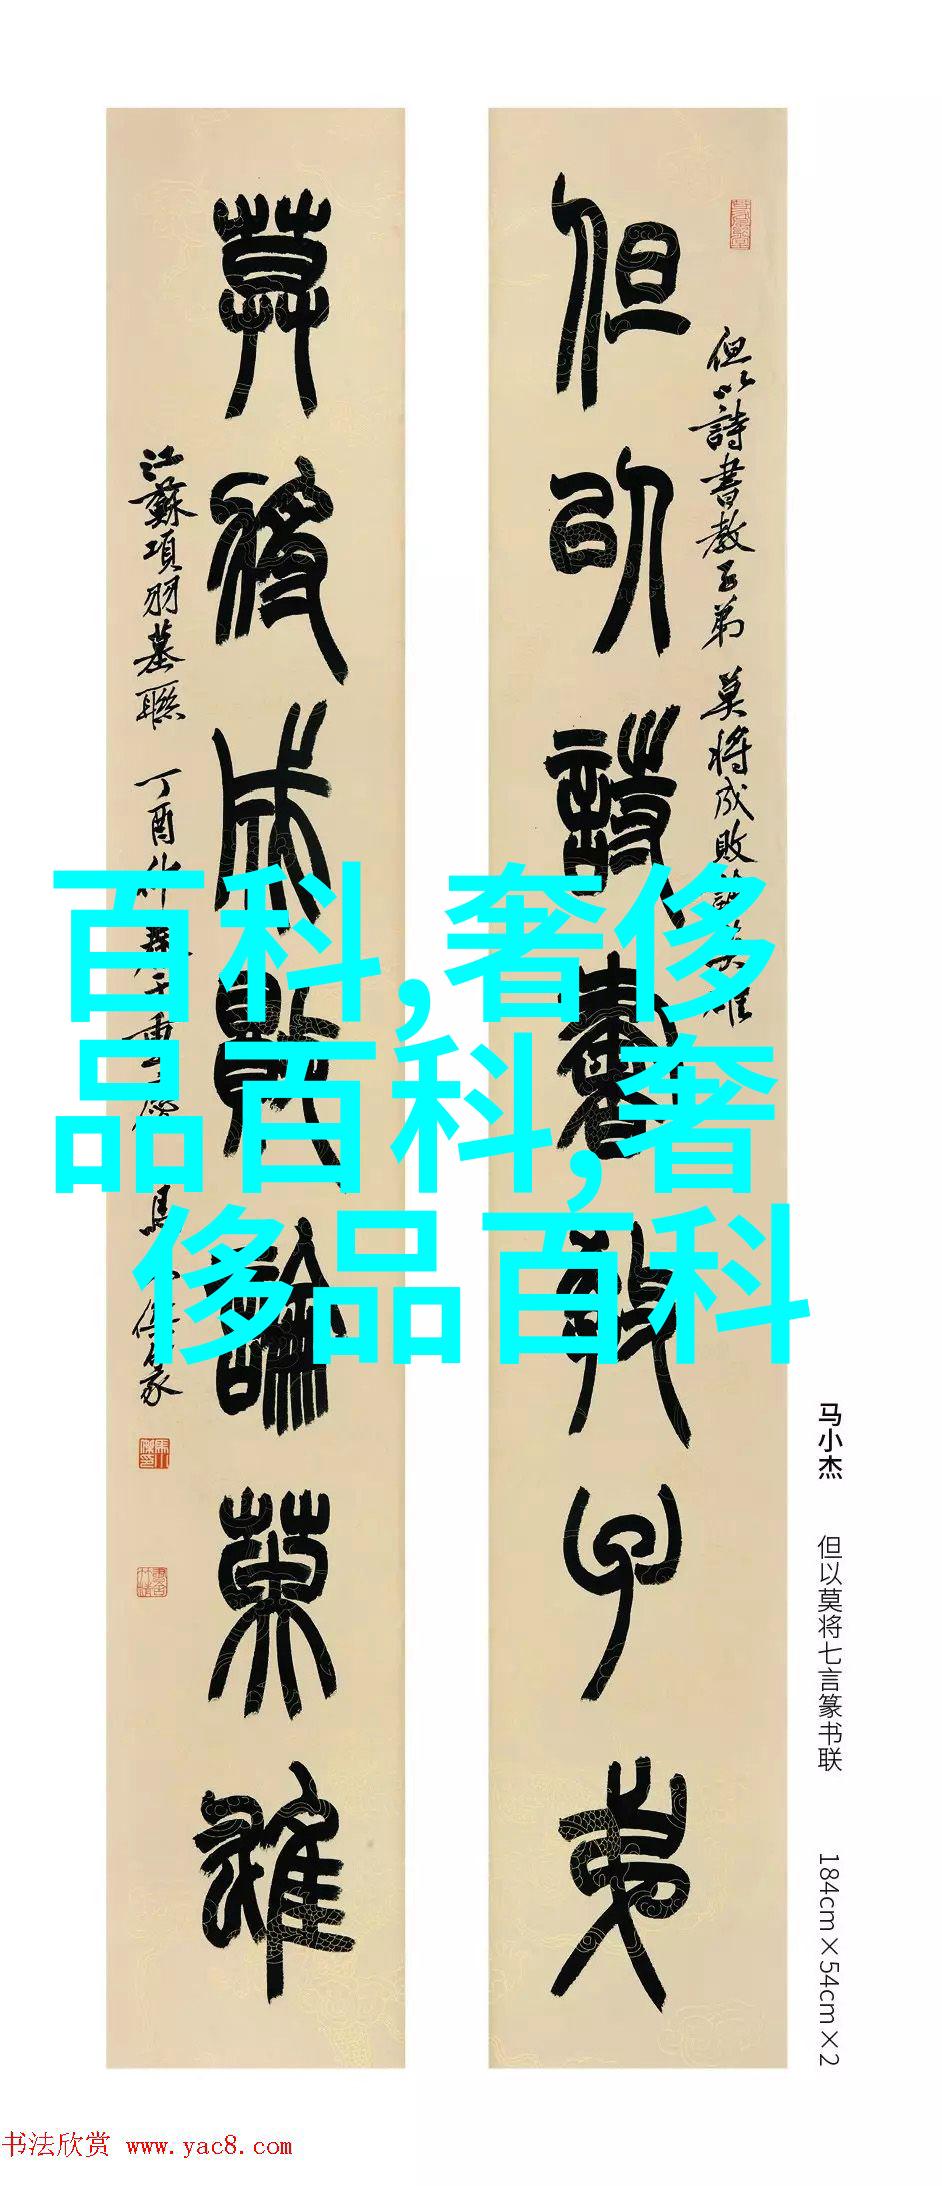 但以詩書教子弟
莫將成敗論英雄
但以詩書教子弟 莫將成敗
江蘇項羽墓聯 丁酉
百科,奢侈
品百科,奢
侈品百科
马小杰 但以莫将七言篆书联 184cm×54cm×2
书法欣赏 www.yac8.com